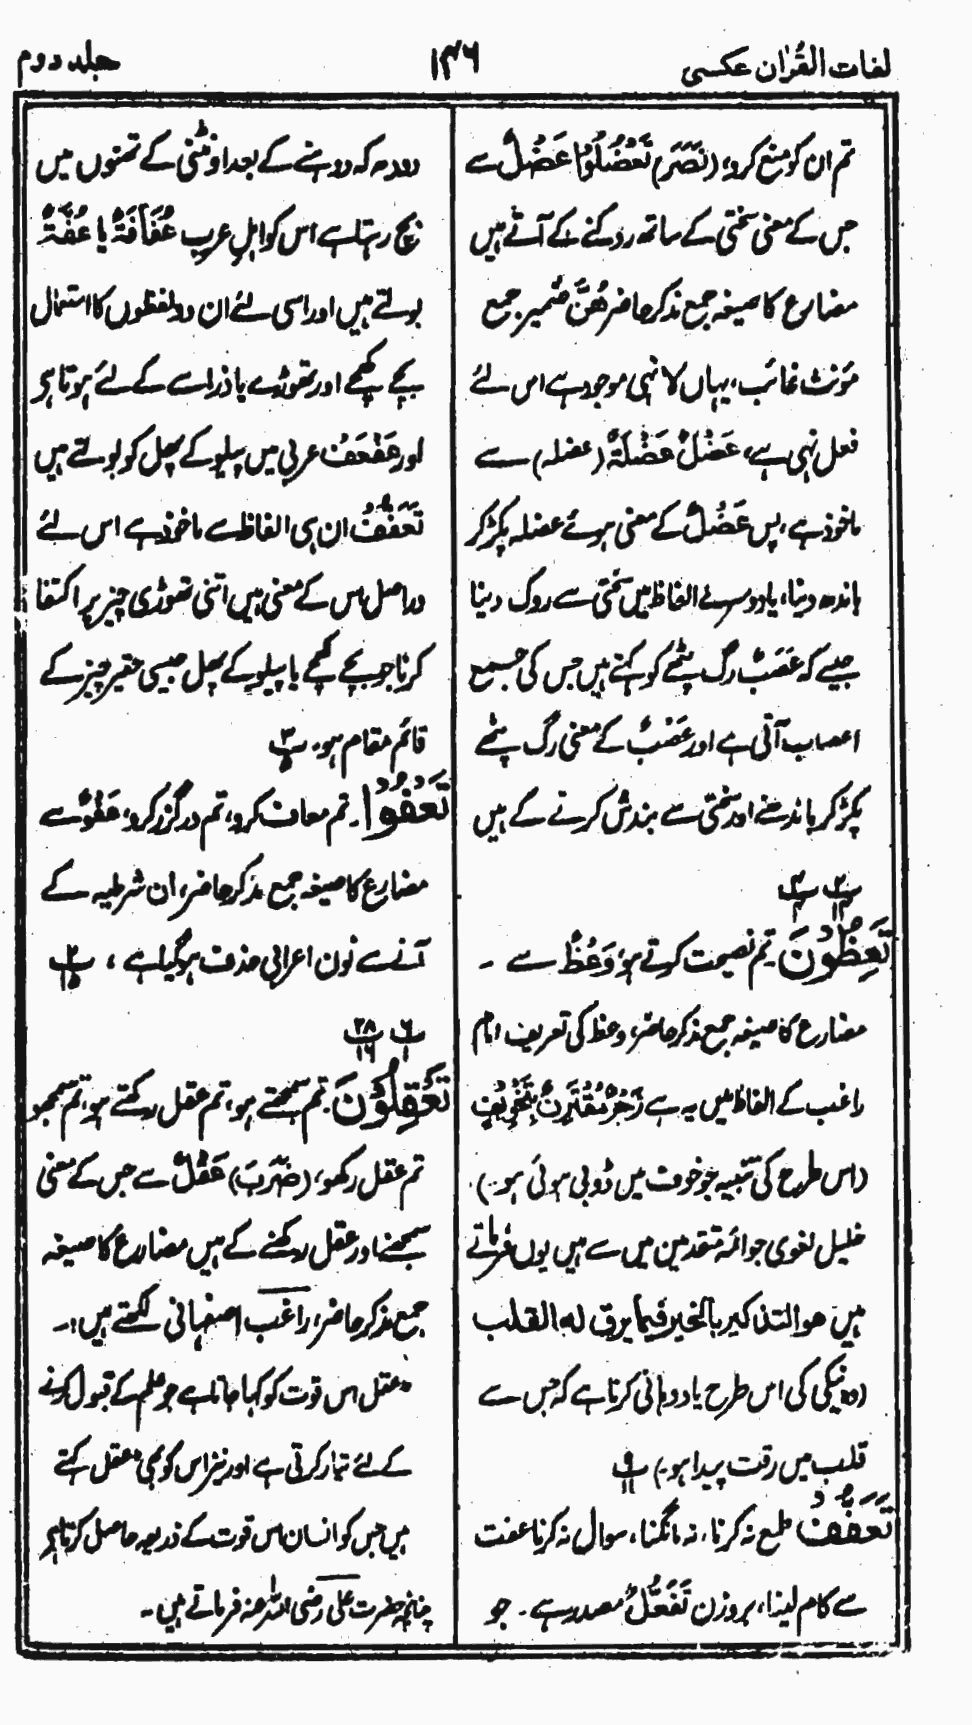 لغات القرآن عکسی
۱۴۶
جلد دوم
تم ان کو منع کرو، (نَصَرَ) تَعْضُلُوْا عَضْلٌ سے
جس کے معنی سختی کے ساتھ روکنے کے آتے ہیں
مضارع کا صیغہ جمع مذکر حاضر ھُنَّ ضمیر جمع
مؤنث غائب، یہاں لا نہی موجود ہے اس لئے
فعل نہی ہے، عَضْلٌ عَضْلَةٌ (عضلہ) سے
ماخوذ ہے، پس عَضْلٌ کے معنی ہوئے عضلہ پکڑ کر
باندھ دینا، یا دوسرے الفاظ میں سختی سے روک دینا
جیسے کہ عَصَبٌ رگ پٹھے کو کہتے ہیں جس کی جمع
اعصاب آتی ہے اور عَصْبٌ کے معنی رگ پٹھے
پکڑ کر باندھنے اور سختی سے بندش کرنے کے ہیں
پ۲ پ۴
تَعِظُوْنَ تم نصیحت کرتے ہو، وَعْظٌ سے ۔
مضارع کا صیغہ جمع مذکر حاضر، وعظ کی تعریف امام
راغب کے الفاظ میں یہ ہے زَجْرٌ مُقْتَرِنٌ بِتَخْوِیْفٍ
(اس طرح کی تنبیہ جو خوف میں ڈوبی ہوئی ہو۔)
خلیل لغوی جو ائمہ متقدمین میں سے ہیں یوں فرماتے
ہیں ھو التذکیر بالخیر فیما یرق لہ القلب
(وہ نیکی کی اس طرح یاد دہانی کرنا ہے کہ جس سے
قلب میں رقت پیدا ہو۔) پ۹
تَعَفُّف طمع نہ کرنا، نہ مانگنا، سوال نہ کرنا عفت
سے کام لینا، بروزن تَفَعُّلٌ مصدر ہے ۔ جو
دودھ کہ دوہنے کے بعد اونٹنی کے تھنوں میں
بچ رہتا ہے اس کو اہل عرب عُفَافَةٌ یا عُفَّةٌ
بولتے ہیں اور اسی لئے ان دو لفظوں کا استعمال
بچے کھچے اور تھوڑے یا ذرا سے کے لئے ہوتا ہے
اور عَفْعَفٌ عربی میں پیلو کے پھل کو بولتے ہیں
تَعَفُّفٌ ان ہی الفاظ سے ماخوذ ہے اس لئے
دراصل اس کے معنی ہیں اتنی تھوڑی چیز پر اکتفا
کرنا جو بچے کھچے یا پیلو کے پھل جیسی حقیر چیز کے
قائم مقام ہو۔ پ۳
تَعْفُوْا ۔ تم معاف کرو، تم درگزر کرو، عَفْوٌ سے
مضارع کا صیغہ جمع مذکر حاضر، ان شرطیہ کے
آنے سے نون اعرابی حذف ہوگیا ہے ، پ۲
پ۶ پ۲۸
تَعْقِلُوْنَ ۔ تم سمجھتے ہو، تم عقل رکھتے ہو، تم سمجھو
تم عقل رکھو، (ضَرَبَ) عَقْلٌ سے جس کے معنی
سمجھنے اور عقل رکھنے کے ہیں مضارع کا صیغہ
جمع مذکر حاضر، راغب اصفہانی لکھتے ہیں:۔
"عقل اس قوت کو کہا جاتا ہے جو علم کے قبول کرنے
کے لئے تیار کرتی ہے اور نیز اس کو بھی عقل کہتے
ہیں جس کو انسان اس قوت کے ذریعہ حاصل کرتا ہے
چنانچہ حضرت علی رضی اللہ عنہ فرماتے ہیں ۔